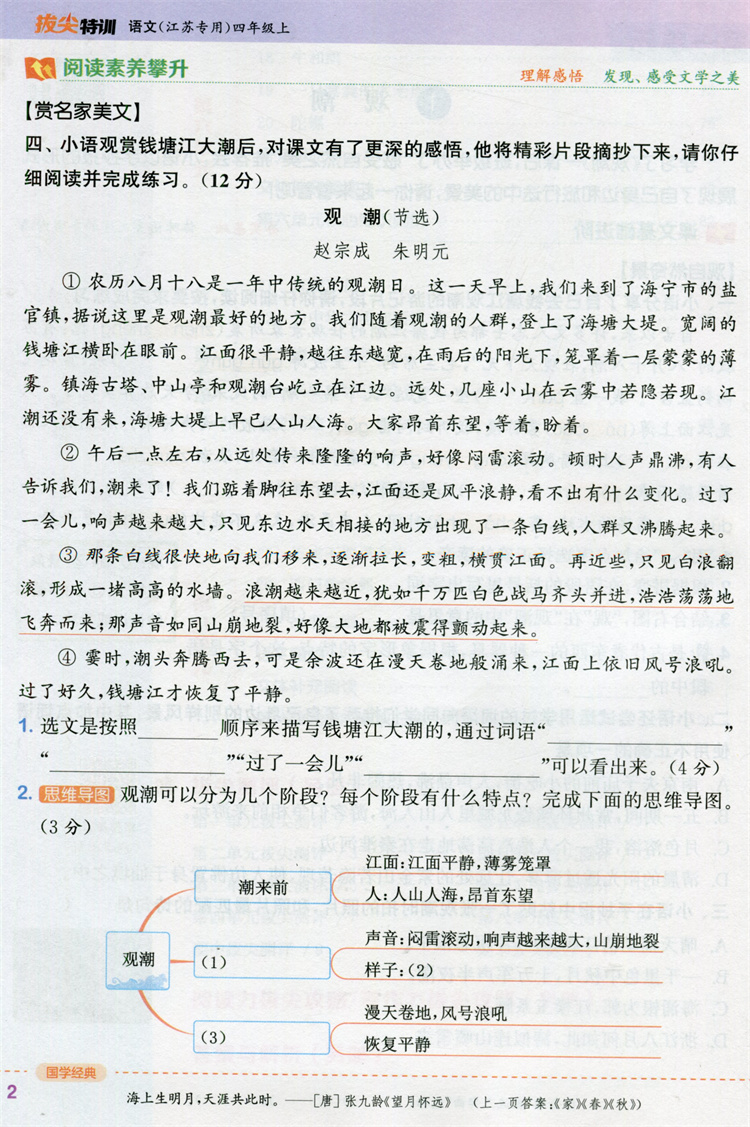 拔尖特训 语文(江苏专用)四年级上
阅读素养攀升 理解感悟 发现、感受文学之美
【赏名家美文】
四、小语观赏钱塘江大潮后,对课文有了更深的感悟,他将精彩片段摘抄下来,请你仔
细阅读并完成练习。(12分)
观 潮(节选)
赵宗成 朱明元
① 农历八月十八是一年中传统的观潮日。这一天早上,我们来到了海宁市的盐
官镇,据说这里是观潮最好的地方。我们随着观潮的人群,登上了海塘大堤。宽阔的
钱塘江横卧在眼前。江面很平静,越往东越宽,在雨后的阳光下,笼罩着一层蒙蒙的薄
雾。镇海古塔、中山亭和观潮台屹立在江边。远处,几座小山在云雾中若隐若现。江
潮还没有来,海塘大堤上早已人山人海。大家昂首东望,等着,盼着。
② 午后一点左右,从远处传来隆隆的响声,好像闷雷滚动。顿时人声鼎沸,有人
告诉我们,潮来了!我们踮着脚往东望去,江面还是风平浪静,看不出有什么变化。过了
一会儿,响声越来越大,只见东边水天相接的地方出现了一条白线,人群又沸腾起来。
③ 那条白线很快地向我们移来,逐渐拉长,变粗,横贯江面。再近些,只见白浪翻
滚,形成一堵高高的水墙。浪潮越来越近,犹如千万匹白色战马齐头并进,浩浩荡荡地
飞奔而来;那声音如同山崩地裂,好像大地都被震得颤动起来。
④ 霎时,潮头奔腾西去,可是余波还在漫天卷地般涌来,江面上依旧风号浪吼。
过了好久,钱塘江才恢复了平静。
1. 选文是按照________顺序来描写钱塘江大潮的,通过词语“________”
“________”“过了一会儿”“________”可以看出来。(4分)
2. 思维导图 观潮可以分为几个阶段?每个阶段有什么特点?完成下面的思维导图。
(3分)
观潮
潮来前
江面:江面平静,薄雾笼罩
人:人山人海,昂首东望
(1)
声音:闷雷滚动,响声越来越大,山崩地裂
样子:(2)
(3)
漫天卷地,风号浪吼
恢复平静
国学经典
2
海上生明月,天涯共此时。——[唐]张九龄《望月怀远》 (上一页答案:《家》《春》《秋》)